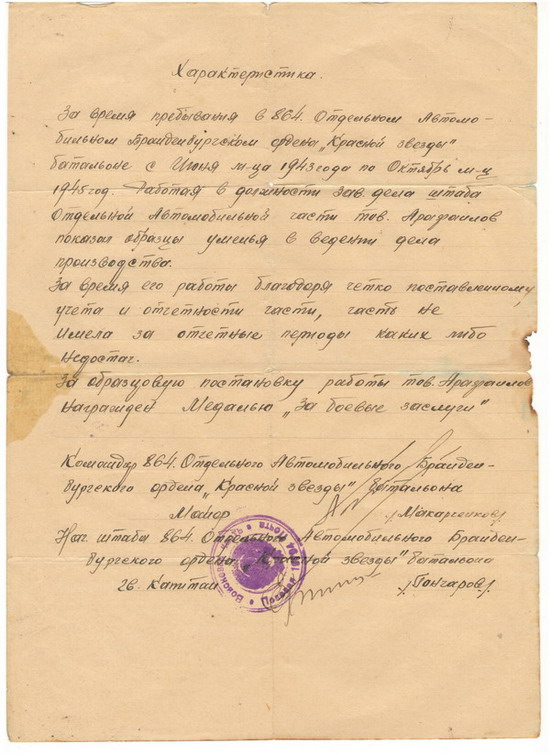 Характеристика.
За время пребывания в 864. Отдельном Автомо-
бильном Бранденбургском ордена „Красной звезды"
батальоне с Июня м-ца 1943 года по Октябрь м-ц
1945 год. Работая в должности Зав. дела штаба
Отдельной Автомобильной части тов. Арафаилов
показал образцы уменья в ведении дела
производства.
За время его работы благодоря четко поставленному
учета и отчетности части, часть не
имела за отчетные периоды каких либо
недостач.
За образцовую постановку работы тов. Арафаилов
награжден Медалью „За боевые заслуги"
Командир 864. Отдельного Автомобильного Бранден-
бургского ордена „Красной звезды" батальона
Майор /Макаренков/
Нач штабы 864. Отдельного Автомобильного Бранден-
бургского ордена „Красной звезды" батальона
гв. Капитан /Гончаров/
Полевая почта